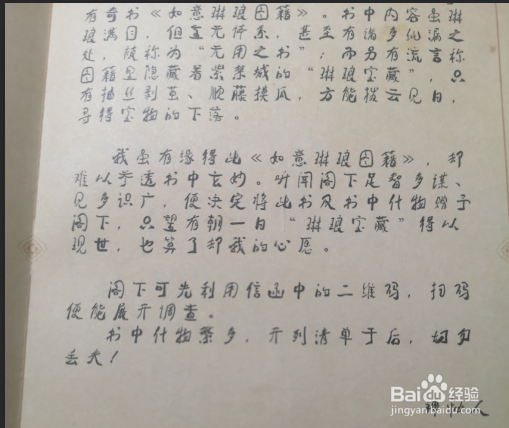 有奇书《如意琳琅图籍》。书中内容虽琳
琅满目，但毫无体系，甚至有诸多纰漏之
处，被称为“无用之书”；而另有流言称
图籍里隐藏着紫禁城的“琳琅宝藏”，只
有抽丝剥茧、顺藤摸瓜，方能拨云见日，
寻得宝物的下落。
我虽有缘得此《如意琳琅图籍》，却
难以参透书中玄妙。听闻阁下足智多谋、
见多识广，便决定将此书及书中什物赠予
阁下，只望有朝一日“琳琅宝藏”得以
现世，也算了却我的心愿。
阁下可先利用信函中的二维码，扫码
便能展开调查。
书中什物繁多，开列清单于后，切勿
丢失！
人
Baidu经验
jingyan.baidu.com